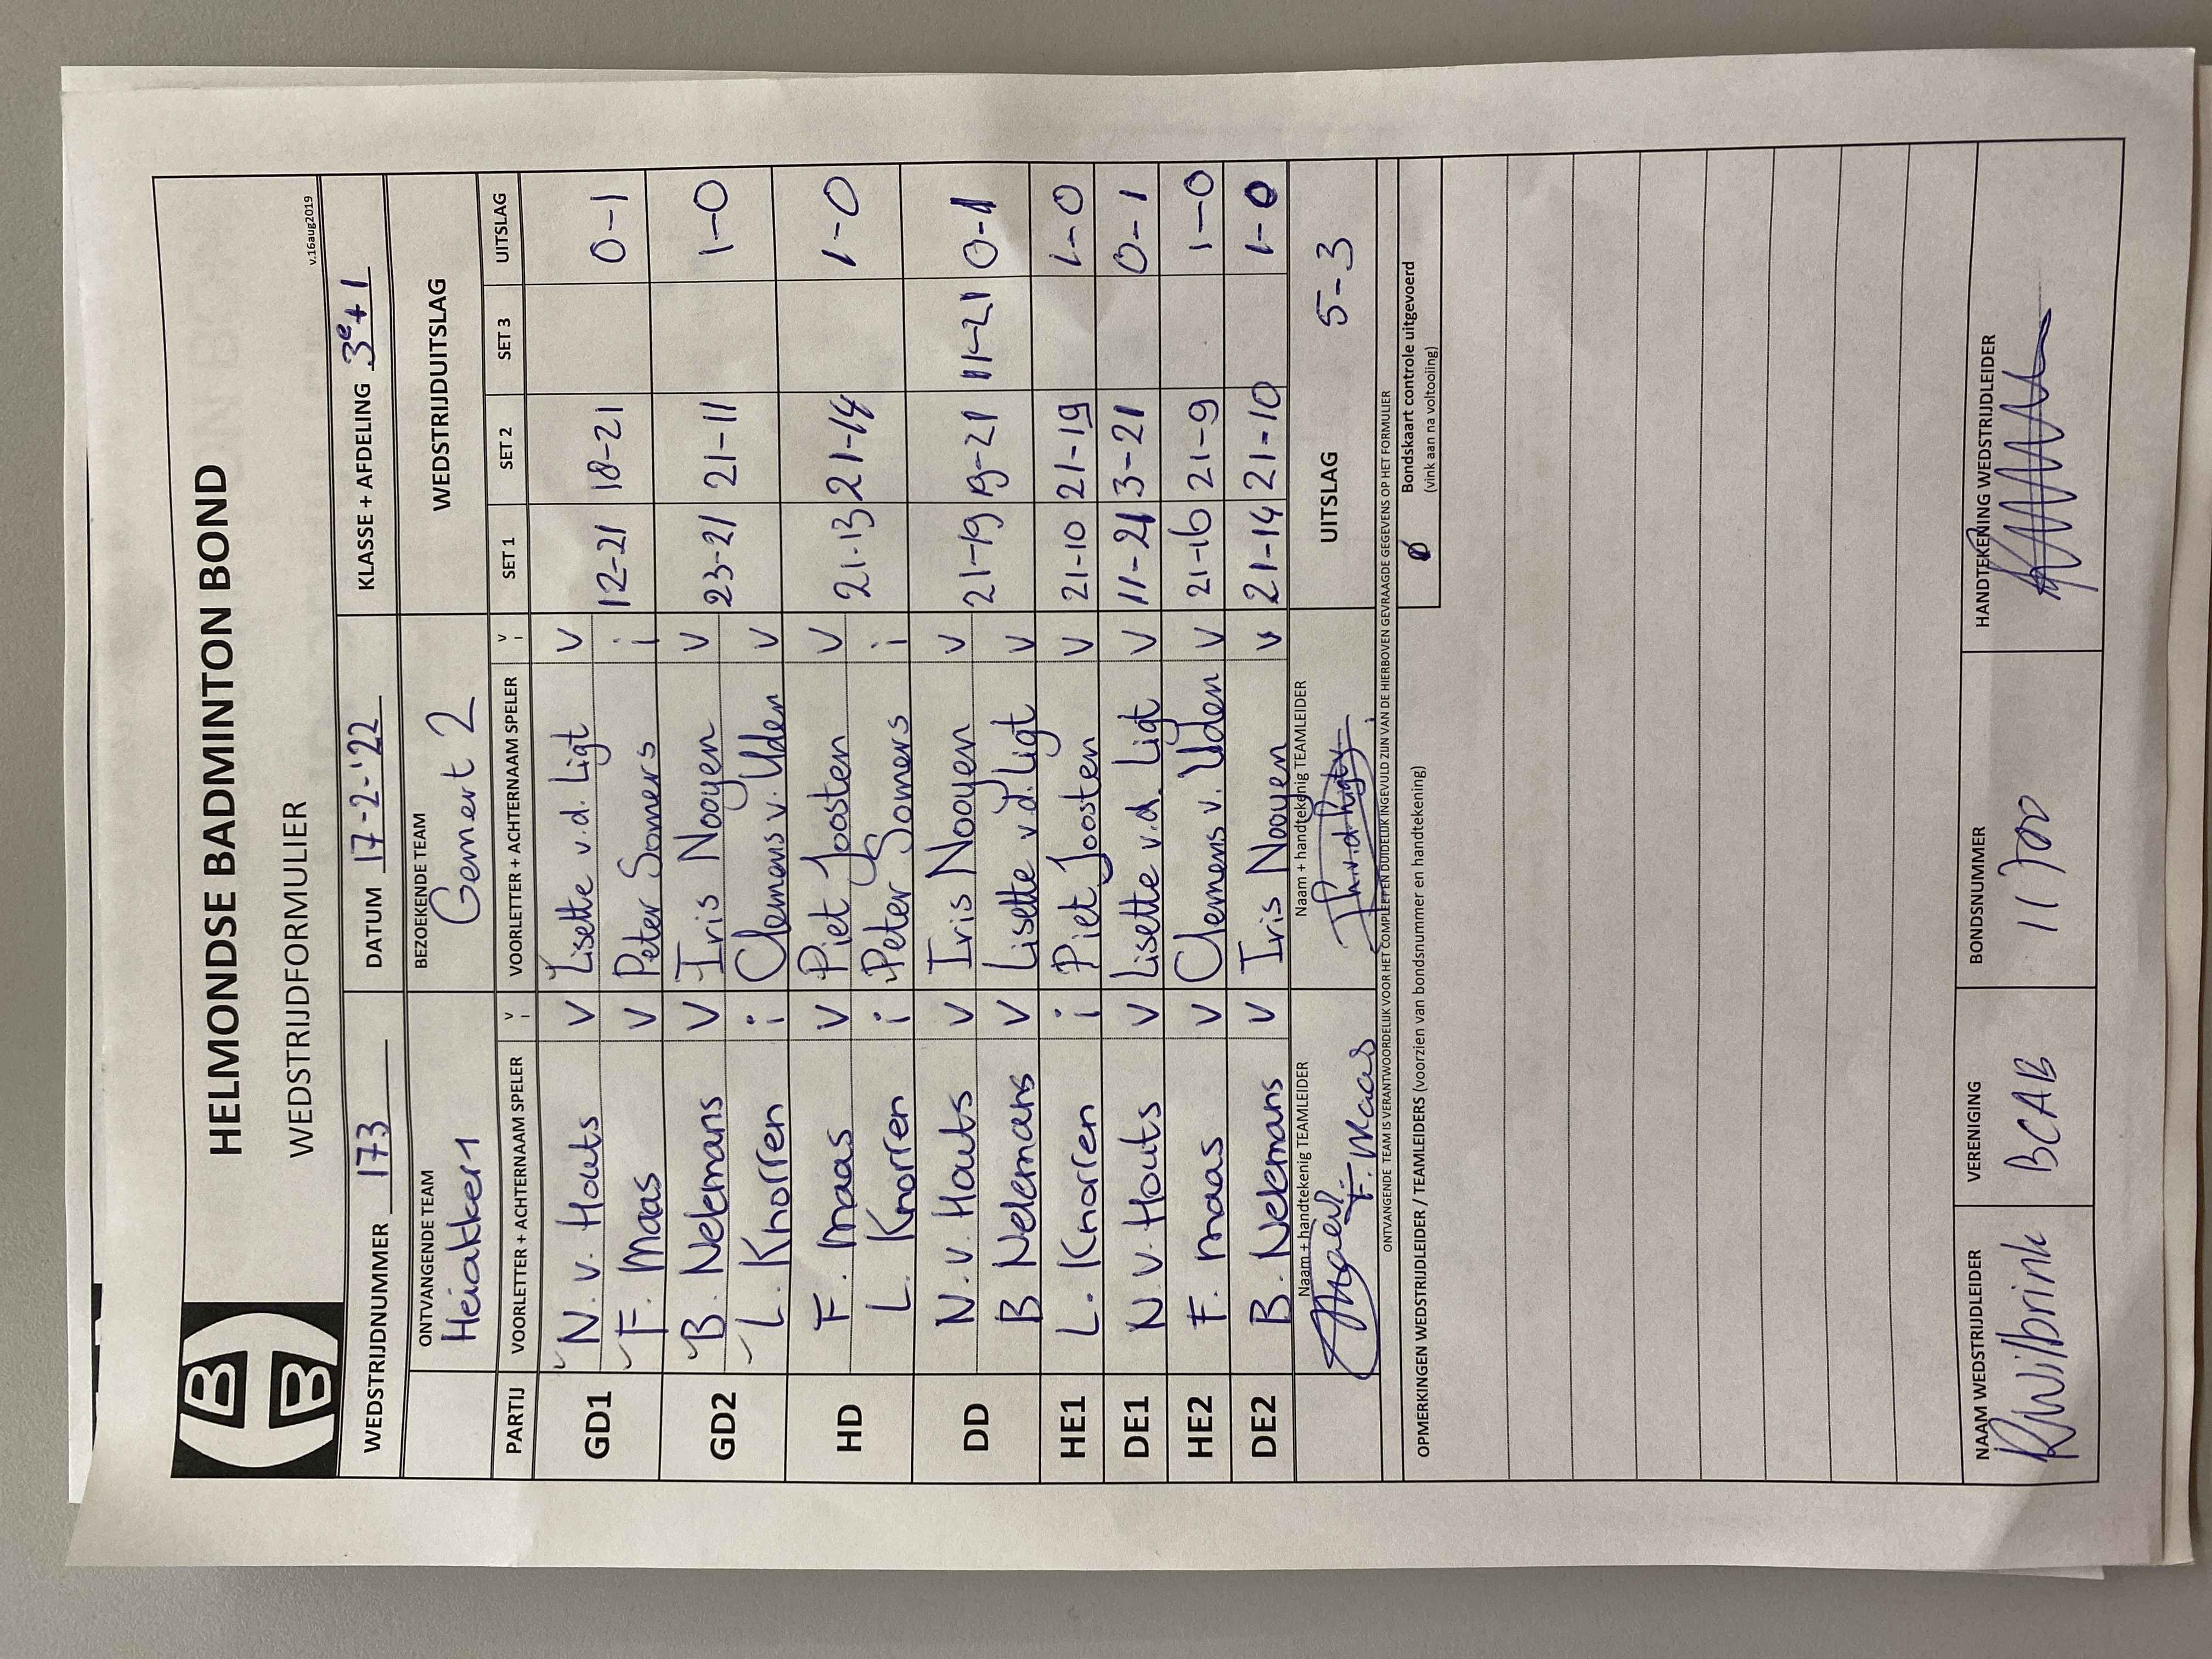 HELMONDSE BADMINTON BOND
WEDSTRIJDFORMULIER
v.16aug2019
WEDSTRIJDNUMMER 173 DATUM 17-2-'22 KLASSE + AFDELING 3e + 1
ONTVANGENDE TEAM BEZOEKENDE TEAM WEDSTRIJDUITSLAG
Heiakker 1 Gemert 2
PARTIJ VOORLETTER + ACHTERNAAM SPELER V I VOORLETTER + ACHTERNAAM SPELER V I SET 1 SET 2 SET 3 UITSLAG
GD1 N. v. Houts V Lisette v.d. Ligt V
F. Maas V Peter Somers i 12-21 18-21 0-1
GD2 B. Nelemans V Iris Nooyen V 23-21 21-11 1-0
L. Knorren i Clemens v. Uden V
HD F. Maas V Piet Joosten V 21-13 21-14 1-0
L. Knorren i Peter Somers i
DD N. v. Houts V Iris Nooyen V 21-19 19-21 11-21 0-1
B Nelemans V Lisette v.d. Ligt V
HE1 L. Knorren i Piet Joosten V 21-10 21-19 1-0
DE1 N. v. Houts V Lisette v.d. Ligt V 11-21 3-21 0-1
HE2 F. Maas V Clemens v. Uden V 21-16 21-9 1-0
DE2 B. Nelemans V Iris Nooyen V 21-14 21-10 1-0
Naam + handtekenig TEAMLEIDER Naam + handtekenig TEAMLEIDER UITSLAG 5-3
F. Maas
ONTVANGENDE TEAM IS VERANTWOORDELIJK VOOR HET COMPLEET EN DUIDELIJK INGEVULD ZIJN VAN DE HIERBOVEN GEVRAAGDE GEGEVENS OP HET FORMULIER
OPMERKINGEN WEDSTRIJDLEIDER / TEAMLEIDERS (voorzien van bondsnummer en handtekening)
Bondskaart controle uitgevoerd
(vink aan na voltooiing)
NAAM WEDSTRIJDLEIDER VERENIGING BONDSNUMMER HANDTEKENING WEDSTRIJDLEIDER
R Wilbrink BCAB